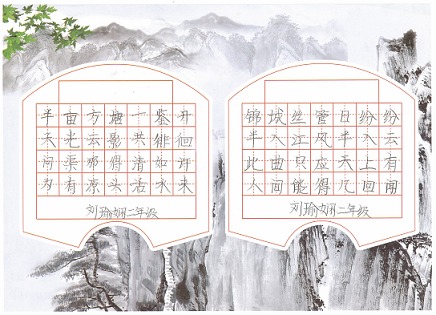 半亩方塘一鉴开
天光云影共徘徊
问渠那得清如许
为有源头活水来
刘瑜娴二年级
锦城丝管日纷纷
半入江风半入云
此曲只应天上有
人间能得几回闻
刘瑜娴二年级